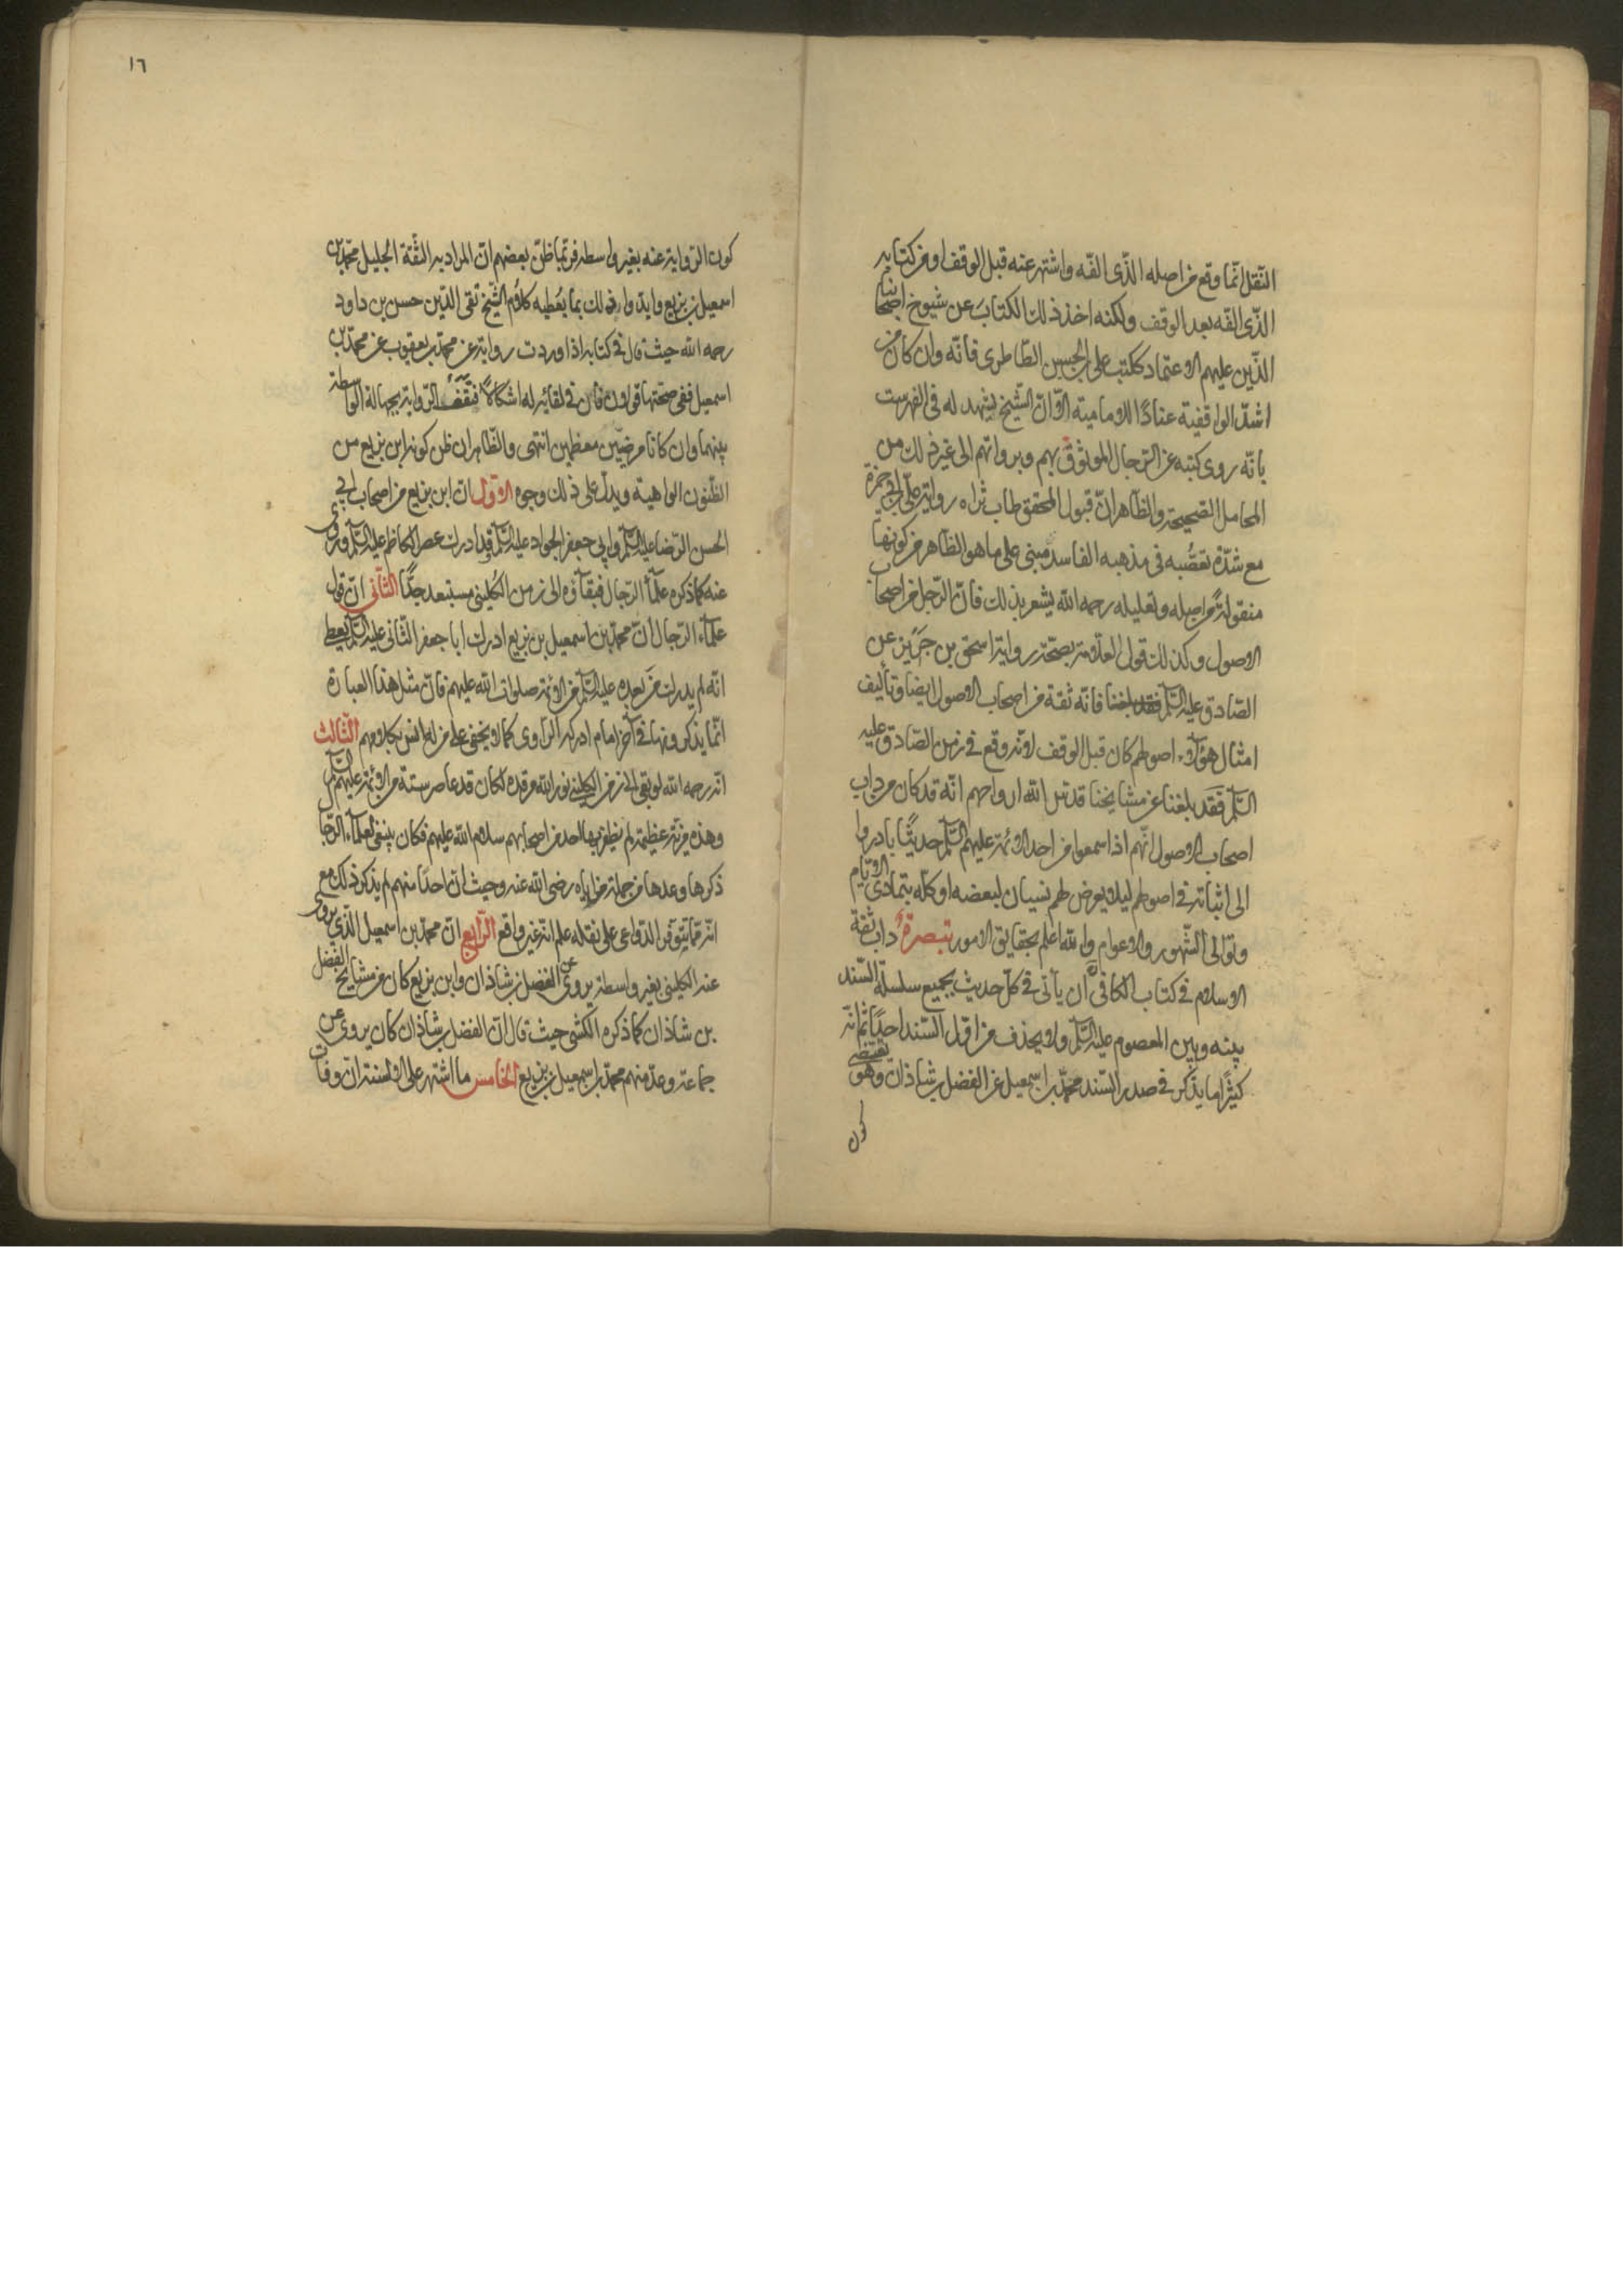 النّقل انّما وقع من اصله الّذى الّفه واشتهر عنه قبل الوقف او من كتابه
الّذى الّفه بعد الوقف ولكنه اخذ ذلك الكتاب عن شيوخ اصحابنا
الّذين عليهم الاعتماد ككتب على بن الحسن الطّاطرى فانّه وان كان من
اشدّ الواقفية عنادًا للامامية الّا انّ الشّيخ يشهد له فى الفهرست
بانّه روى كتبه عن الرّجال الموثوق بهم وبرواتهم الى غير ذلك من
المحامل الصّحيحة والظّاهر انّ قبول المحقق طاب ثراه رواية علىّ بن ابى حمزة
مع شدّة تعصّبه فى مذهبه الفاسد مبنى على ما هو الظّاهر من كونها
منقولة من اصله وتعليله رحمه الله يشعر بذلك فانّ الرّجل من اصحاب
الاصول وكذلك قول العلّامة بصحّة رواية اسحق بن جرير عن
الصّادق عليه السّلم فانّه ثقة من اصحاب الاصول ايضا وتأليف
امثال هؤلآء اصولهم كان قبل الوقف لانّه وقع فى زمن الصّادق عليه
السّلم فَقَد بلغنا عن مشايخنا قدّس الله ارواحهم انّه قد كان من داب
اصحاب الاصول انّهم اذا سمعوا من احد الائمّة عليهم السّلم حديثًا بادروا
الى اثباته فى اصولهم ليلا يعرض لهم نسيان لبعضه او كلّه بتمادى الايّام
وتوالى الشّهور والاعوام والله اعلم بحقايق الامور تبصرة داب ثقة
الاسلام فى كتاب الكافى ان يأتى فى كلّ حديث بجميع سلسلة السّند
بينه وبين المعصوم عليه السّلم ولا يحذف من اوّل السّند احدًا ثم انّه
كثيرًا ما يذكر فى صدر السّند محمّد بن اسمعيل عن الفضل بن شاذان وهو يقتضى
كون
١٦
كون الرّواية عنه بغير واسطة فربّما ظنّ بعضهم انّ المراد به الثّقة الجليل محمّد بن
اسمعيل بن بزيع وايّدوا ذلك بما يُعطيه كلام الشّيخ تقى الدّين حسن بن داود
رحمه الله حيث قال فى كتابه اذا وردت رواية عن محمّد بن يعقوب عن محمّد بن
اسمعيل ففى صحّتها قولان فانّ فى لقائه له اشكالًا فتقف الرّواية بجهالة الواسطة
بينهما وان كانا مرضيّين معظمين انتهى والظّاهر ان ظن كونه ابن بزيع من
الظّنون الواهية ويدلّ على ذلك وجوه الاوّل انّ ابن بزيع من اصحاب ابى
الحسن الرّضا عليه السّلم وابى جعفر الجواد عليه السّلم وقد ادرك عصر الكاظم عليه السّلم وروى
عنه كما ذكره علمآء الرّجال فبقآؤه الى زمن الكلينى مستبعد جدًّا الثّانى انّ قول
علمآء الرّجال انّ محمّد بن اسمعيل بن بزيع ادرك ابا جعفر الثّانى عليه السّلم يعطى
انّه لم يدرك مَن بعده عليه السّلم من الائمّة صلوات الله عليهم فانّ مثل هذا العبارة
انّما يذكرونها فى آخر امام ادركه الرّاوى كما لا يخفى على من له انس بكلامهم الثّالث
انّه رحمه الله لو بقى الى زمن الكلينى نور الله مرقده لكان قد عاصر ستّة من الائمّة عليهم السّلم
وهذه مزيّة عظيمة لم يظفر بها احد من اصحابهم سلام الله عليهم فكان ينبغى لعلمآء الرّجال
ذكرها وعدها من جملة مزاياه رضى الله عنه وحيث انّ احدًا منهم لم يذكر ذلك مع
انّه ممّا يتوفّر الدّواعى على نقله علم انّه غير واقع الرّابع انّ محمّد بن اسمعيل الّذى يروى
عنه الكلينى بغير واسطة يروى عن الفضل بن شاذان وابن بزيع كان من مشايخ الفضل
بن شاذان كما ذكره الكشى حيث قال انّ الفضل بن شاذان كان يروى عن
جماعة وعدّ منهم محمّد بن اسمعيل بن بزيع الخامس ما اشتهر على الالسنة ان وفات